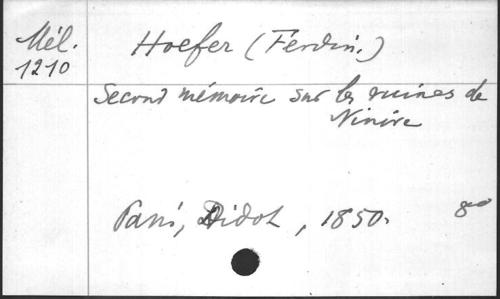 Mél.
1210
Hoefer (Ferdin.)
Second mémoire sur les ruines de
Ninive
Paris, Didot, 1850.
8°